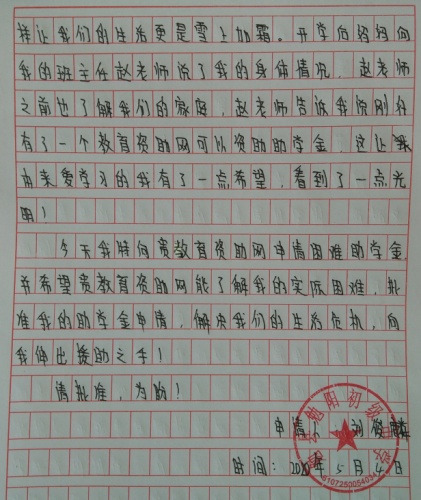 样让我们的生活更是雪上加霜。开学后妈妈向
我的班主任赵老师说了我的身体情况，赵老师
之前也了解我们的家庭，赵老师告诉我说刚在
有了一个教育资助网可以资助助学金，这让我
由来爱学习的我有了一点希望，看到了一点光
明！
今天我特向贵教育资助网申请困难助学金，
并希望贵教育资助网能了解我的实际困难，批
准我的助学金申请，解决我们的生活危机，向
我伸出援助之手！
请批准，为盼！
勉阳初级中学
申请人 刘俊麟
时间：20 年5月4日
6107250054031